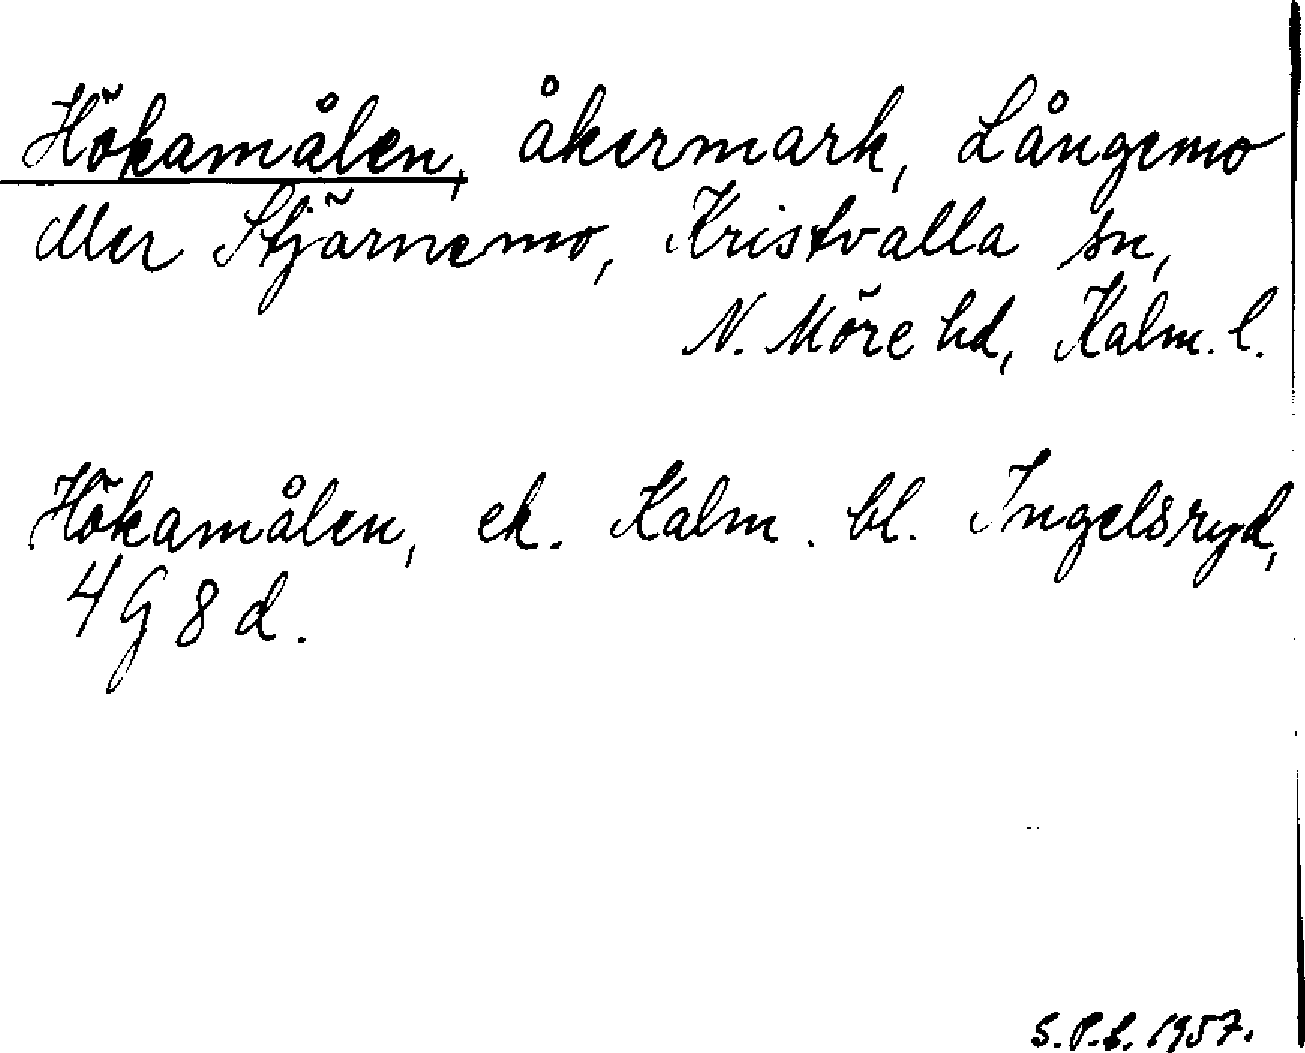 Hökamålen, åkermark, Långemo
eller Stjärnemo, Kristvalla sn,
N. Möre hd, Kalm. l.
Hökamålen, ek. Kalm. bl. Ingelsryd,
4 G 8 d.
S.P.b. 1957.